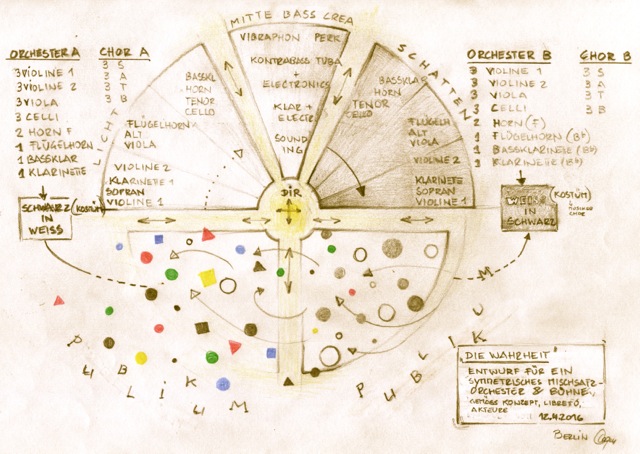 MITTE BASS CREA
ORCHESTER A
CHOR A
3 VIOLINE 1
3 VIOLINE 2
3 VIOLA
3 CELLI
2 HORN F
1 FLÜGELHORN
1 BASSKLAR
1 KLARINETTE
3 S
3 A
3 T
3 B
SCHWARZ
IN
WEISS
(KOSTÜM)
LICHT
BASSKL
HORN
TENOR
CELLO
FLÜGELHORN
ALT
VIOLA
VIOLINE 2
KLARINETTE 1
SOPRAN
VIOLINE 1
VIBRAPHON PERK.
KONTRABASS TUBA
+
ELECTRONICS
KLAR +
ELECTR.
SOUND
ING
DIR
SCHATTEN
BASSKLAR
HORN
TENOR
CELLO
FLÜGELH
ALT
VIOLA
VIOLINE 2
KLARINETTE
SOPRAN
VIOLINE 1
ORCHESTER B
CHOR B
3 VIOLINE 1
3 VIOLINE 2
3 VIOLA
3 CELLI
2 HORN (F)
1 FLÜGELHORN (Bb)
1 BASSKLARINETTE (Bb)
1 KLARINETTE (Bb)
3 S
3 A
3 T
3 B
WEISS
IN
SCHWARZ
(KOSTÜM)
PUBLIKUM
PUBLIKUM
"DIE WAHRHEIT"
ENTWURF FÜR EIN
SYMMETRISCHES MISCHSATZ-
ORCHESTER & BÜHNE,
GEMÄSS KONZEPT, LIBRETO,
AKTEURE
12.4.2016
BERLIN